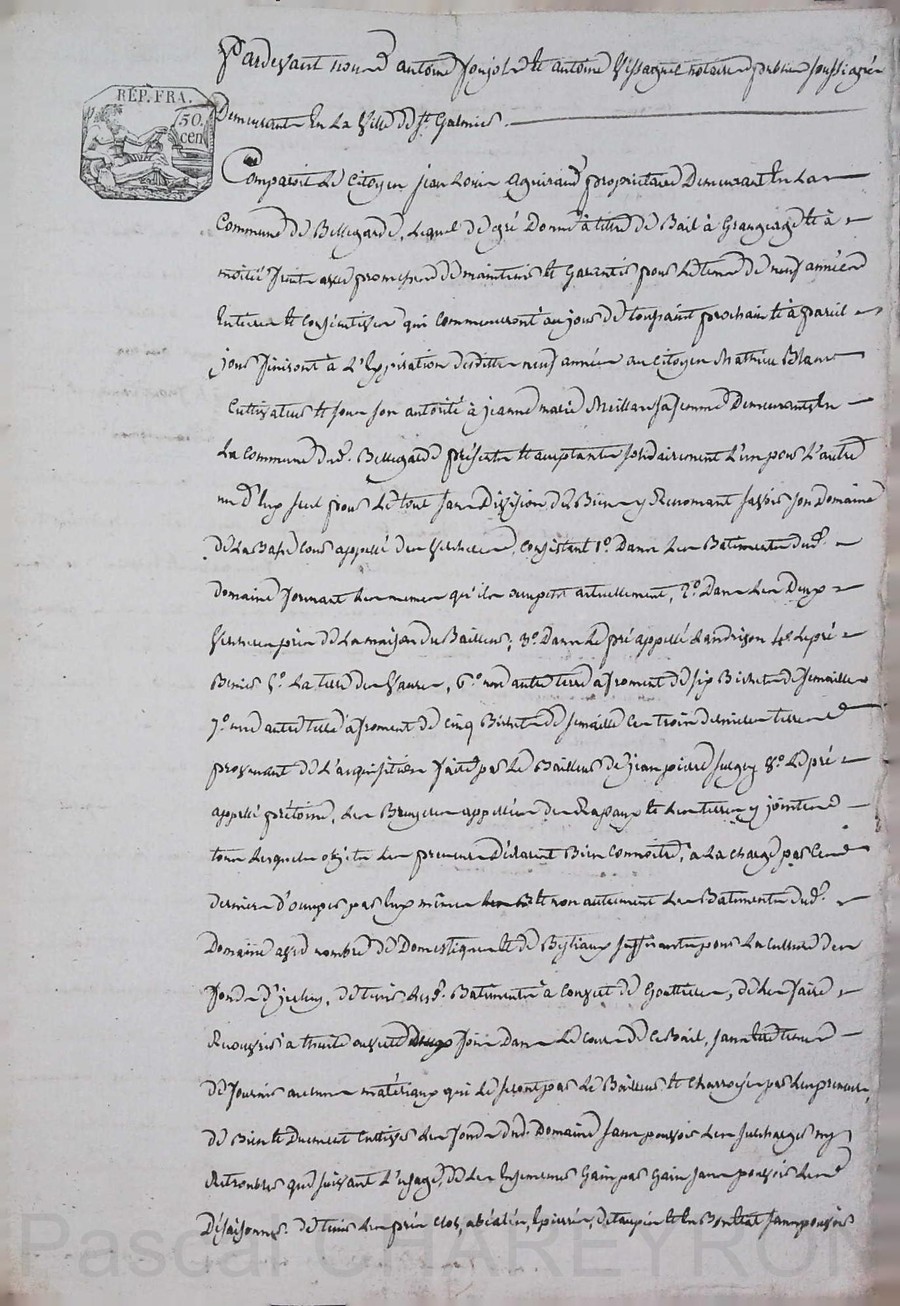 RÉP. FRA.
50
cen
Pardevant nous antoine et antoine notaires publics soussignés
Demeurants En La Ville de St Galmier.
Comparoit Le Citoyen jean Louis propriétaire Demeurant En La
Commune de Bellegarde, Lequel de gré Donne à titre de Bail à Grangeage et à
moitié fruits avec promesse de maintenir et Garantir pour Le tems de neuf années
Entières et consécutives qui commenceront au jour de toussaint prochain et à pareil
jour finiront à L'Expiration desdittes neuf années au Citoyen Mathieu Blanc
Cultivateur et sous son autorité à jeanne marie sa femme Demeurants En
La Commune dud. Bellegarde présents et acceptants solidairement L'un pour L'autre
un d'Eux seul pour Le tout sans Division de Biens y Renonçant savoir son Domaine
de La Basse Cour appellé des consistant 1o. Dans Les Batiments dud.
Domaine formant Les memes qu'ils occupent actuellement, 2o. Dans Les Deux
près de La maison du Bailleur; 3o. Dans Le pré appellé 4o. Le pré
5o. La terre des 6o. une autre terre à froment de six Bichets de semaille
7o. une autre terre à froment de cinq Bichets de semaille Les trois dernières terres
provenant de L'acquisition faite par Le Bailleur de jean pierre 8o. Le pré
appellé Les Bruyères appellées des et Les terres y jointes
tous Lesquels objets Les preneurs Déclarent Bien Connoitre, à La charge par Ces
derniers d'occuper par Eux mêmes et non autrement Les Batiments dud.
Domaine avec nombre de Domestiques et de Bestiaux suffisants pour La Culture des
fonds d'iceluy, de tenir Lesd. Batiments à Couvert de Gouttières, de Les faire
Recouvrir à thuile ouverte fois Dans Le Cours de Ce Bail, sans Etre tenus
de fournir aucuns matériaux qui Le seront par Le Bailleur et Charroyés par Les preneurs,
de Bien et Duement Cultiver Les fonds dud. Domaine sans pouvoir Les surcharger ny
Retroubler que suivant L'usage, de Les Ensemencer Gain par Gain sans pouvoir Les
Désaisonner. de tenir Les prés Clos, Epierrés, détaupés et En Bon Etat sans pouvoir
Pascal CHAREYRON